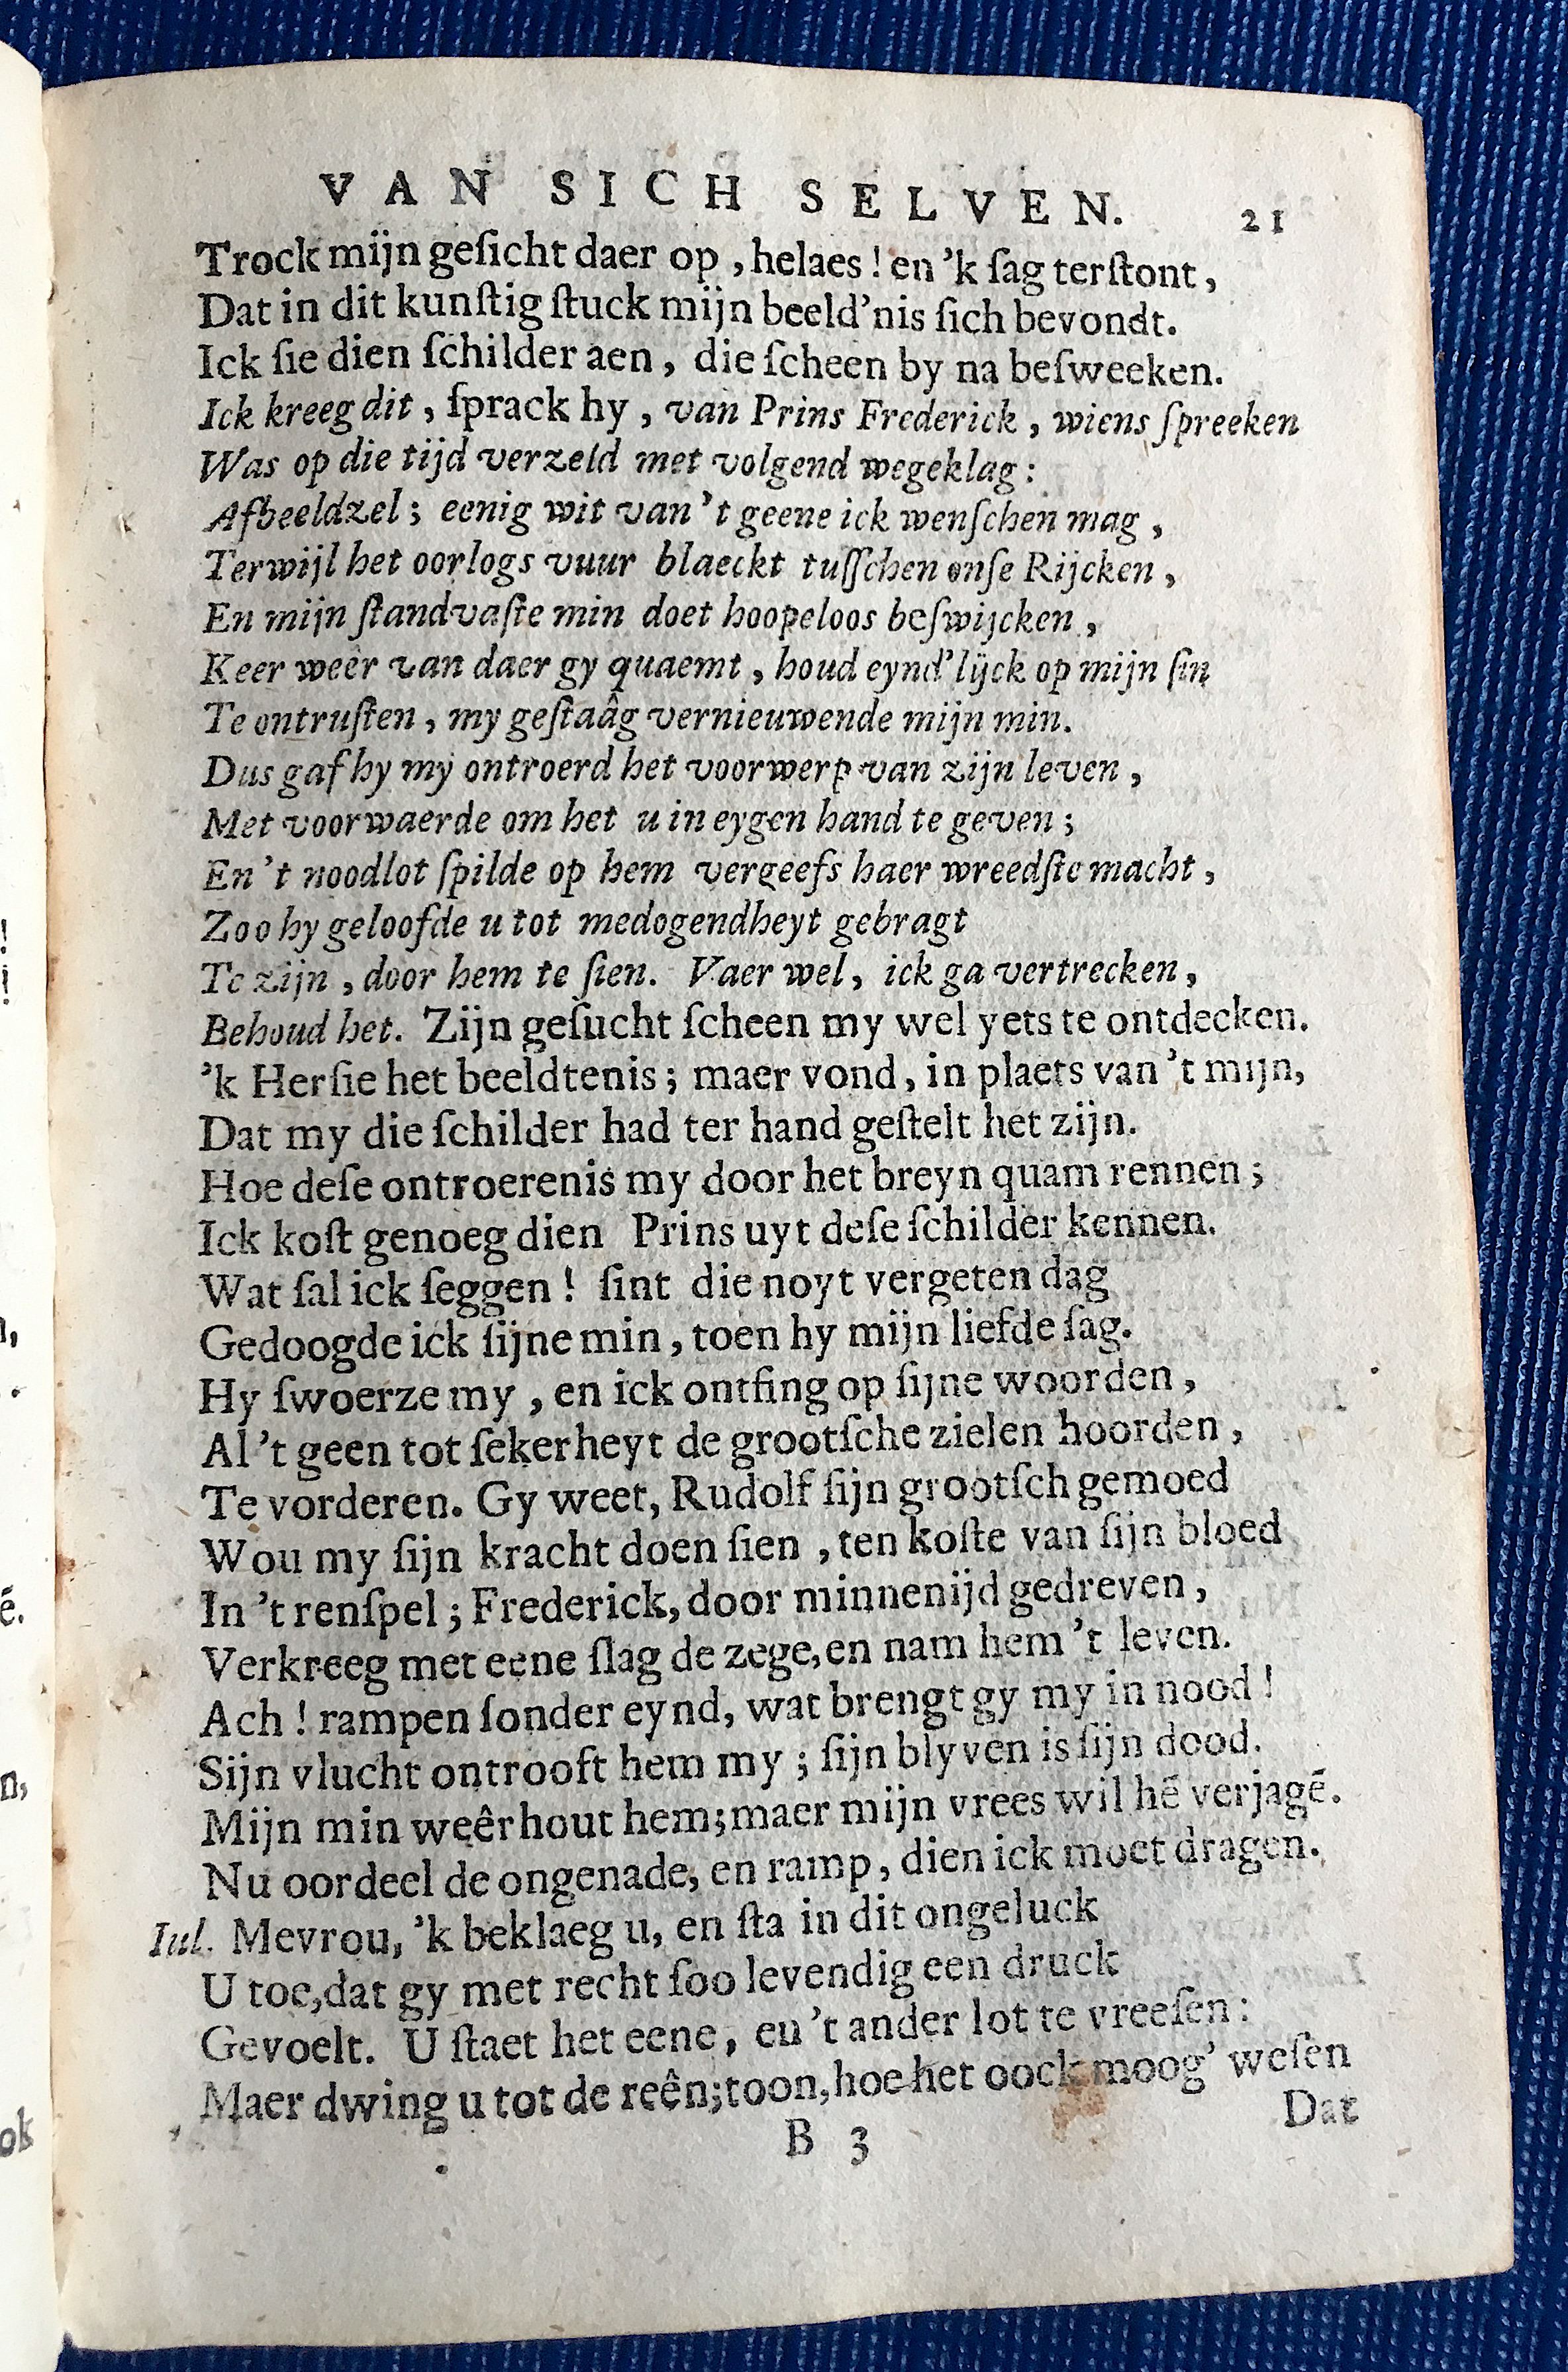 VAN SICH SELVEN. 21
Trock mijn geſicht daer op, helaes! en 'k ſag terſtont,
Dat in dit kunſtig ſtuck mijn beeld'nis ſich bevondt.
Ick ſie dien ſchilder aen, die ſcheen by na beſweeken.
Ick kreeg dit, ſprack hy, van Prins Frederick, wiens ſpreeken
Was op die tijd verzeld met volgend wegeklag:
Afbeeldzel; eenig wit van 't geene ick wenſchen mag,
Terwijl het oorlogs vuur blaeckt tuſſchen onſe Rijcken,
En mijn ſtandvaſte min doet hoopeloos beſwijcken,
Keer weer van daer gy quaemt, houd eynd'lijck op mijn ſin
Te ontruſten, my geſtaâg vernieuwende mijn min.
Dus gaf hy my ontroerd het voorwerp van zijn leven,
Met voorwaerde om het u in eygen hand te geven;
En 't noodlot ſpilde op hem vergeefs haer wreedſte macht,
Zoo hy geloofde u tot medogendheyt gebragt
Te zijn, door hem te ſien. Vaer wel, ick ga vertrecken,
Behoud het. Zijn geſucht ſcheen my wel yets te ontdecken.
'k Herſie het beeldtenis; maer vond, in plaets van 't mijn,
Dat my die ſchilder had ter hand geſtelt het zijn.
Hoe deſe ontroerenis my door het breyn quam rennen;
Ick koſt genoeg dien Prins uyt deſe ſchilder kennen.
Wat ſal ick ſeggen! ſint die noyt vergeten dag
Gedoogde ick ſijne min, toen hy mijn liefde ſag.
Hy ſwoerze my, en ick ontfing op ſijne woorden,
Al 't geen tot ſekerheyt de grootſche zielen hoorden,
Te vorderen. Gy weet, Rudolf ſijn grootſch gemoed
Wou my ſijn kracht doen ſien, ten koſte van ſijn bloed
In 't renſpel; Frederick, door minnenijd gedreven,
Verkreeg met eene ſlag de zege, en nam hem 't leven.
Ach! rampen ſonder eynd, wat brengt gy my in nood!
Sijn vlucht ontrooft hem my; ſijn blyven is ſijn dood.
Mijn min weêrhout hem; maer mijn vrees wil hē verjagē.
Nu oordeel de ongenade, en ramp, dien ick moet dragen.
Iul. Mevrou, 'k beklaeg u, en ſta in dit ongeluck
U toe, dat gy met recht ſoo levendig een druck
Gevoelt. U ſtaet het eene, en 't ander lot te vreeſen:
Maer dwing u tot de reên; toon, hoe het oock moog' weſen
B 3 Dat